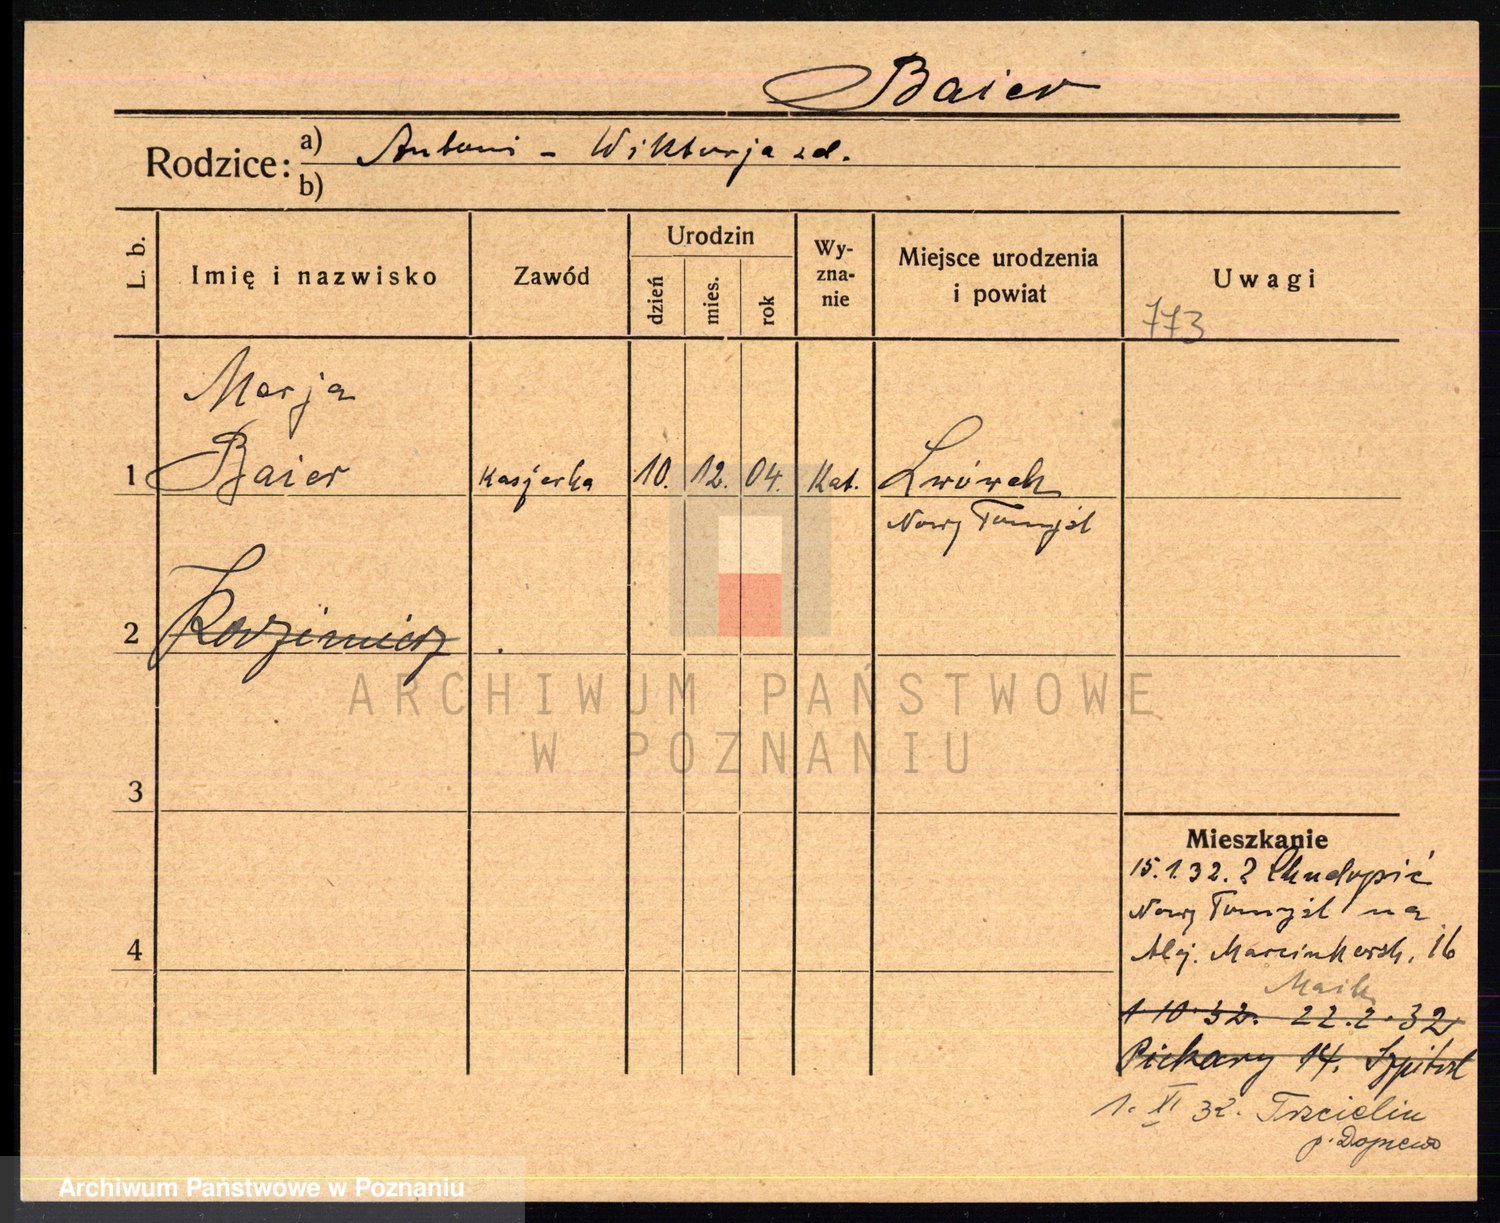 Baier
Rodzice: a) Antoni - Wiktorja zd.
b)
L. b. Imię i nazwisko Zawód Urodzin dzień mies. rok Wy-zna-nie Miejsce urodzenia i powiat Uwagi
773
Marja
1 Baier Kasjerka 10. 12. 04. Kat. Lwówek
Nowy Tomyśl
2 Kazimierz
ARCHIWUM PAŃSTWOWE
W POZNANIU
3
4
Mieszkanie
15.1.32. z Chudopsic
Nowy Tomyśl na
Alej. Marcinkowsk. 16
1 10.32. 22.2.32
Piekary 14. Szpital
1. XI 32. Trzcielin
p. Dopiewo
Archiwum Państwowe w Poznaniu